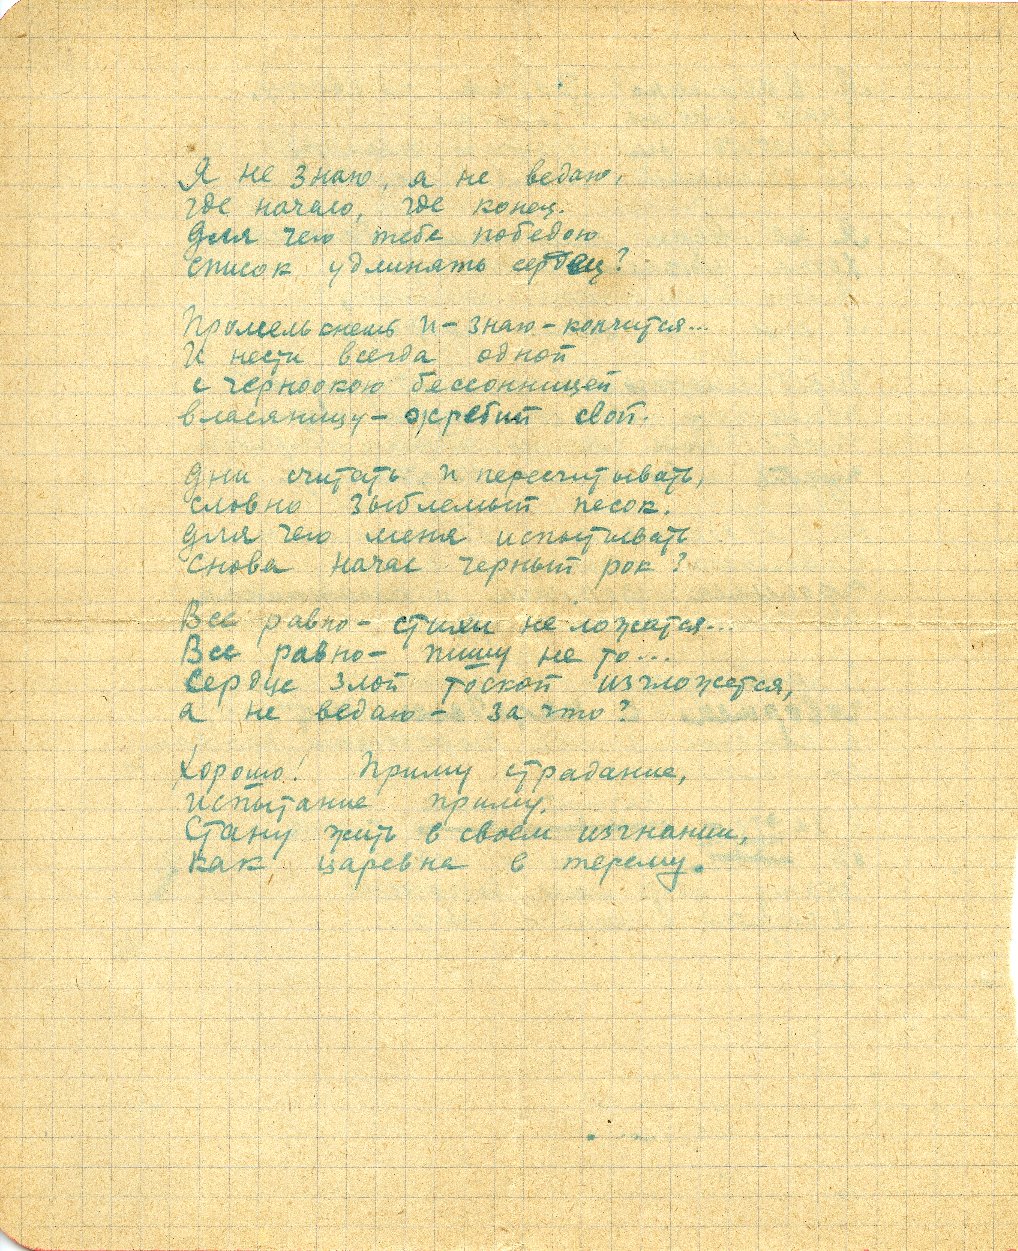 Я не знаю, я не ведаю,
где начало, где конец.
Для чего тебе победою
список удлинять сердец?
Промелькнешь и – знаю – кончится...
И нести всегда одной
с черноокою бессонницей
власяницу – жребий свой.
Дни считать и пересчитывать,
словно зыблемый песок.
Для чего меня испытывать
снова начал черный рок?
Все равно – стихи не ложатся...
Все равно – пишу не то...
Сердце злой тоской изгложется,
а не ведаю – за что?
Хорошо! Приму страдание,
испытание приму.
Стану жить в своем изгнании,
как царевна в терему.